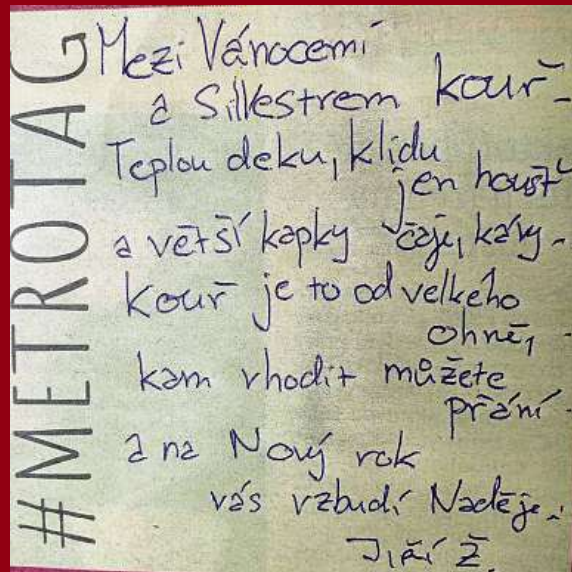 #METROTAG
Mezi Vánocemi
a Silvestrem kouř -
Teplou deku, klidu
jen houšť
a větší kapky čaje, kávy -
Kouř je to od velkého
ohně,
kam vhodit můžete
přání -
a na Nový rok
vás vzbudí Naděje.
Jiří Ž.